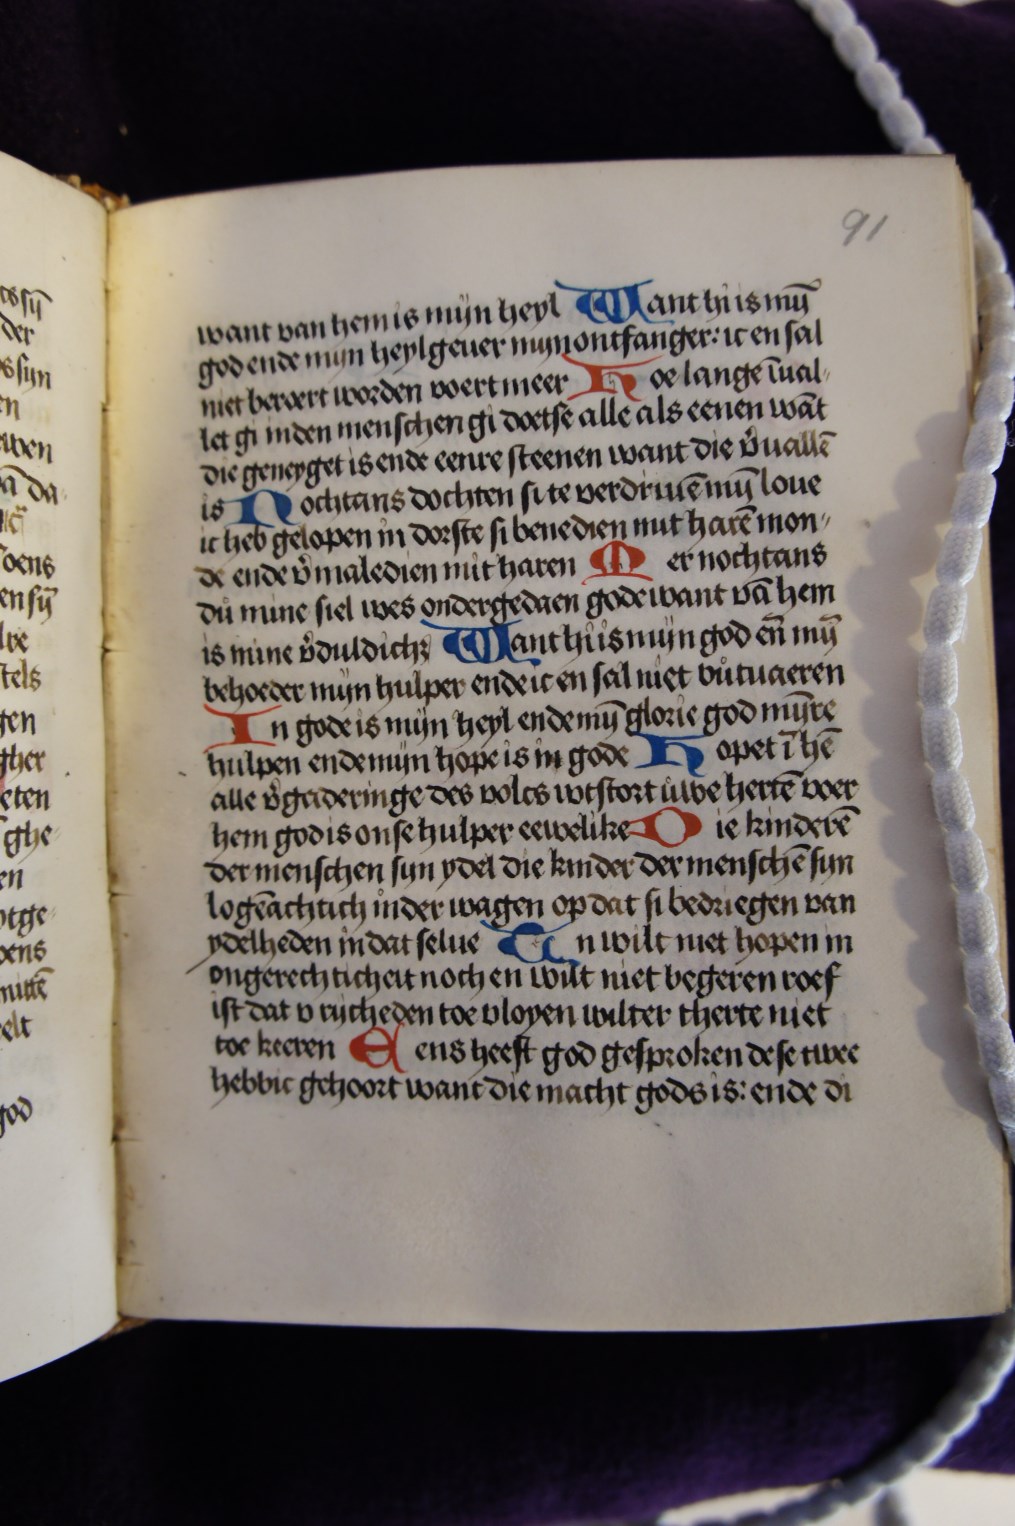 91
want van hem is mijn heyl Want hi is mȳ
god ende mijn heylgeuer mijn ontfanger: ic en sal
niet beroert worden voert meer Hoe lange īual-
let gi inden menschen gi doetse alle als eenen wāt
die geneyget is ende eenre steenen want die v̉uallē
is Nochtans dochten si te verdriuē mȳ loue
ic heb gelopen in dorste si benedien mit harē mon-
de ende v̉maledien mit haren Mer nochtans
du mine siel wes ondergedaen gode want vā hem
is mine v̉duldich Want hi is mijn god eñ mȳ
behoeder mijn hulper ende ic en sal niet
In gode is mijn heyl ende mȳ glorie god mȳre
hulpen ende mijn hope is in gode Hopet ī hē
alle v̉gaderinge des volcs wtstort uwe hertē voer
hem god is onse hulper eewelike Die kinderē
der menschen sijn ydel die kinder der menschē sijn
logēachtich inder wagen op dat si bedriegen van
ydelheden in dat selue En wilt niet hopen in
ongerechticheit noch en wilt niet begeren roef
ist dat v rijcheden toe vloyen wilter therte niet
toe keeren Eens heeft god gesproken dese twee
hebbic gehoort want die macht gods is: ende di